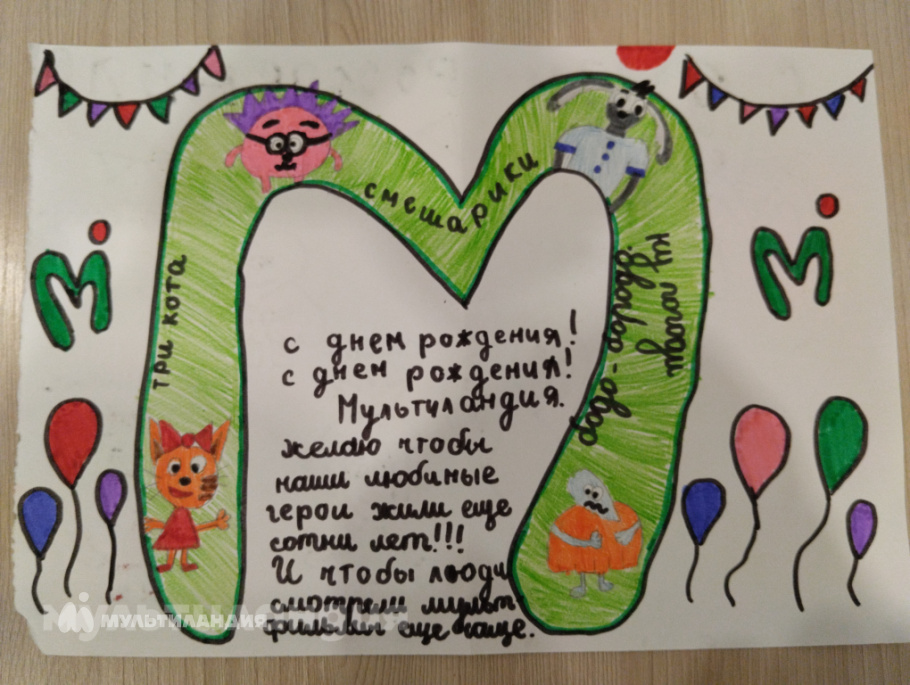 три кота
смешарики
ну погоди
бодо -
м
м
с днем рождения!
с днем рождения!
Мультиландия.
желаю чтобы
наши любимые
герои жили еще
сотни лет!!!
И чтобы люди
смотрели мульт
фильмы еще чаще.
МУЛЬТИЛАНДИЯ